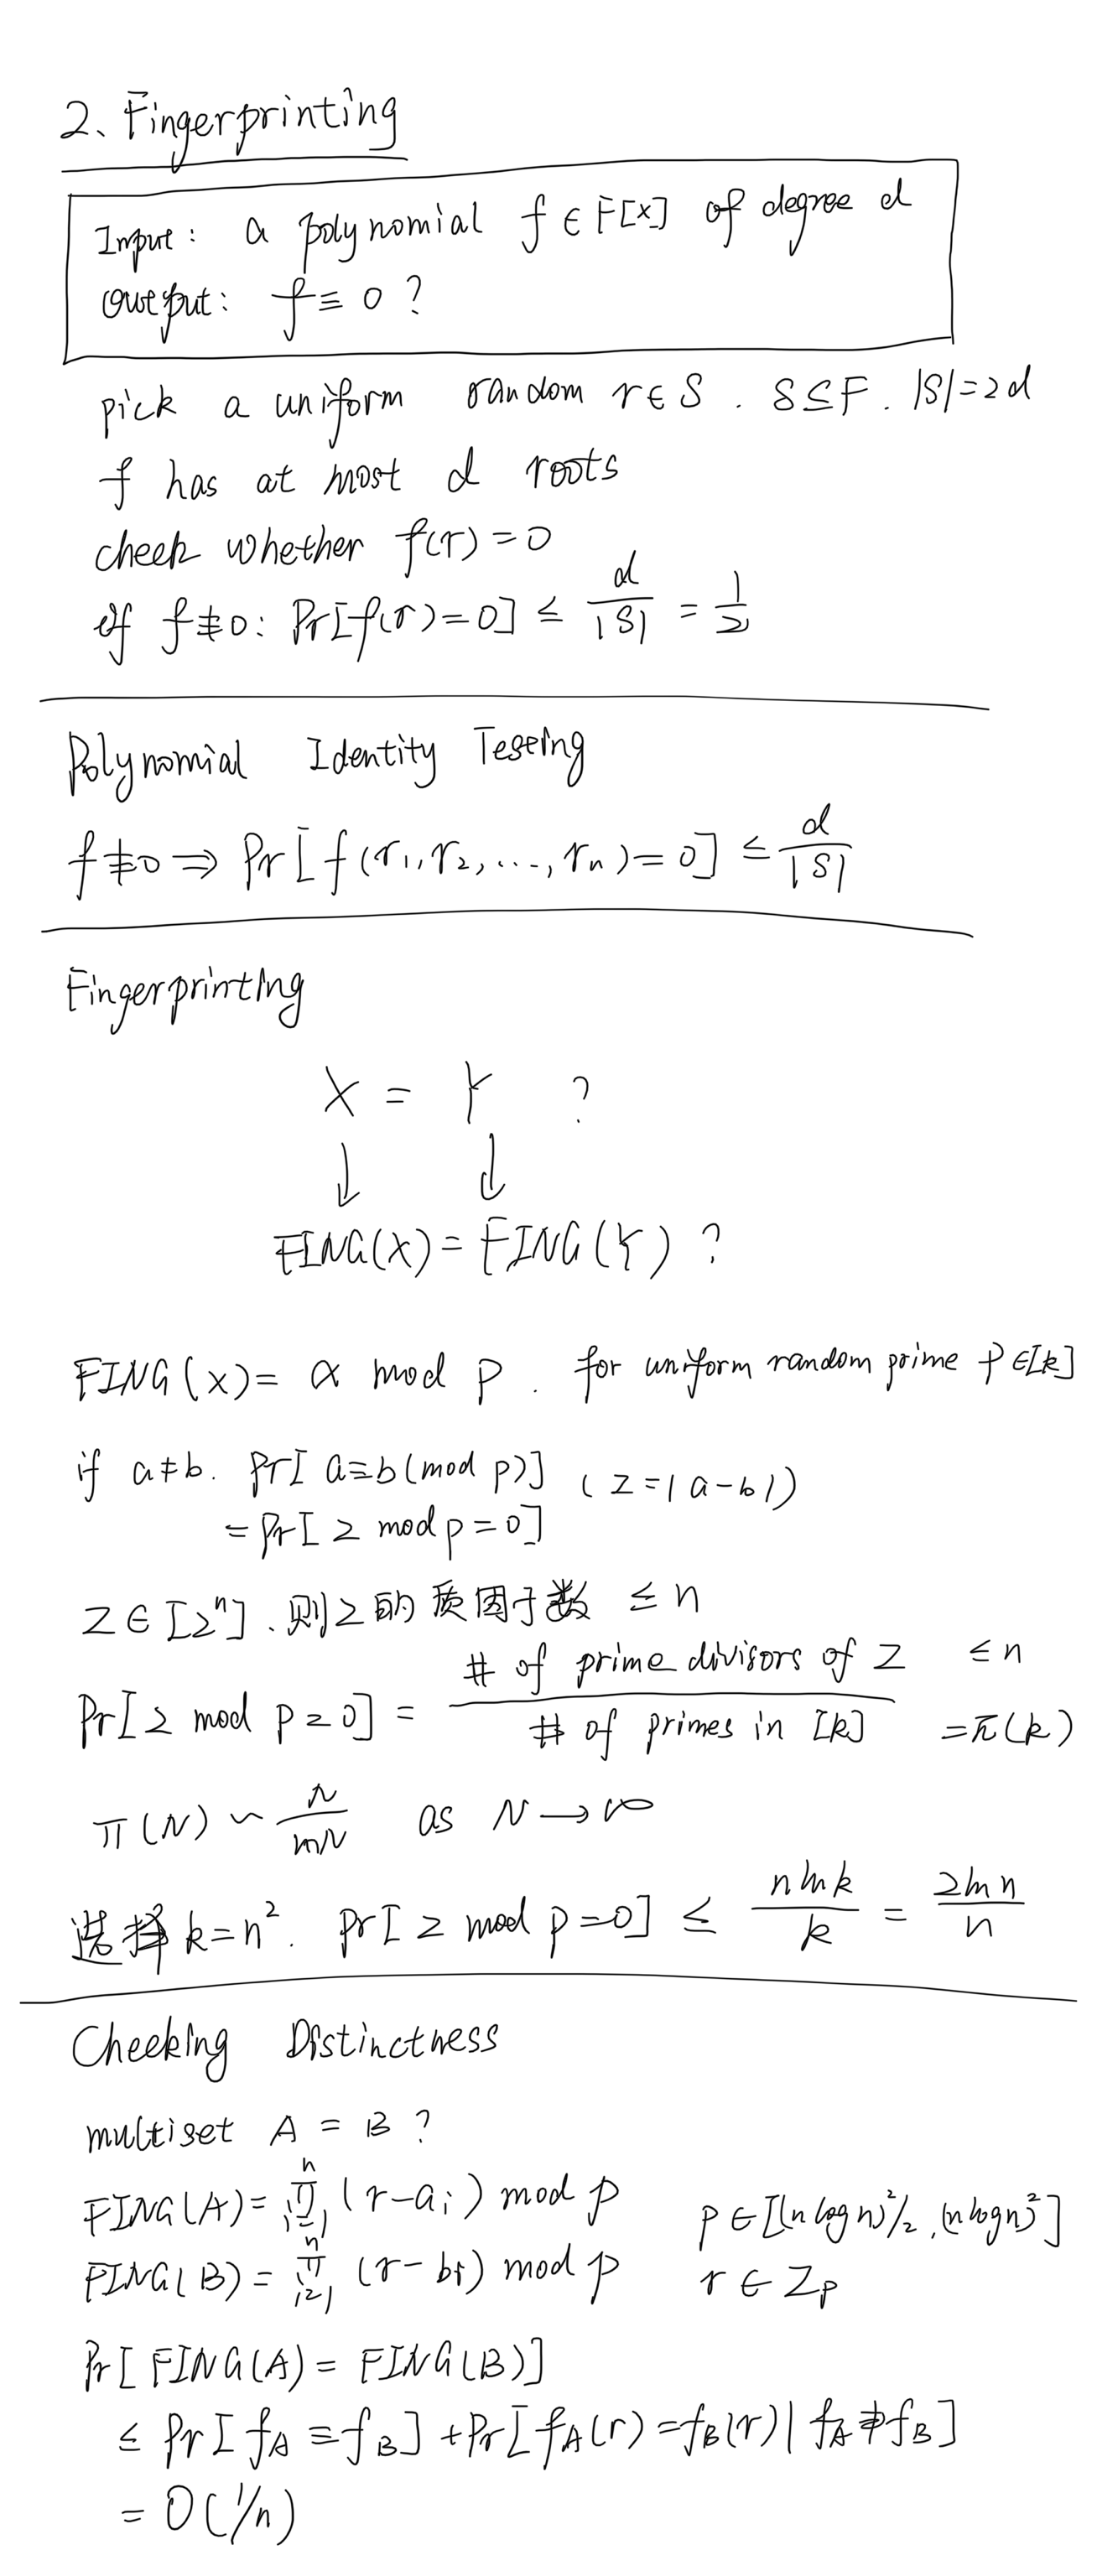 2、Fingerprinting
Input: a polynomial f ∈ F[x] of degree d
output: f ≡ 0 ?
pick a uniform random r ∈ S . S ⊆ F . |S| = 2d
f has at most d roots
check whether f(r) = 0
if f ≢ 0: Pr[f(r) = 0] ≤ d/|S| = 1/2
Polynomial Identity Testing
f ≢ 0 ⇒ Pr[f(r₁, r₂, ..., rₙ) = 0] ≤ d/|S|
Fingerprinting
X = Y ?
↓ ↓
FING(X) = FING(Y) ?
FING(x) = x mod p . for uniform random prime p ∈ [k]
if a ≠ b. Pr[a ≡ b (mod p)] (z = |a - b|)
= Pr[z mod p = 0]
z ∈ [2ⁿ]. 则z的质因子数 ≤ n
Pr[z mod p = 0] = # of prime divisors of z / # of primes in [k] ≤ n = π(k)
π(N) ~ N/lnN as N → ∞
选择 k = n². Pr[z mod p = 0] ≤ n ln k / k = 2 ln n / n
Checking Distinctness
multiset A = B ?
FING(A) = ∏ⁿᵢ₌₁ (r - aᵢ) mod p p ∈ [(n log n)²/2, (n log n)²]
FING(B) = ∏ⁿᵢ₌₁ (r - bᵢ) mod p r ∈ Zₚ
Pr[FING(A) = FING(B)]
≤ Pr[f_A ≡ f_B] + Pr[f_A(r) = f_B(r) | f_A ≢ f_B]
= O(1/n)